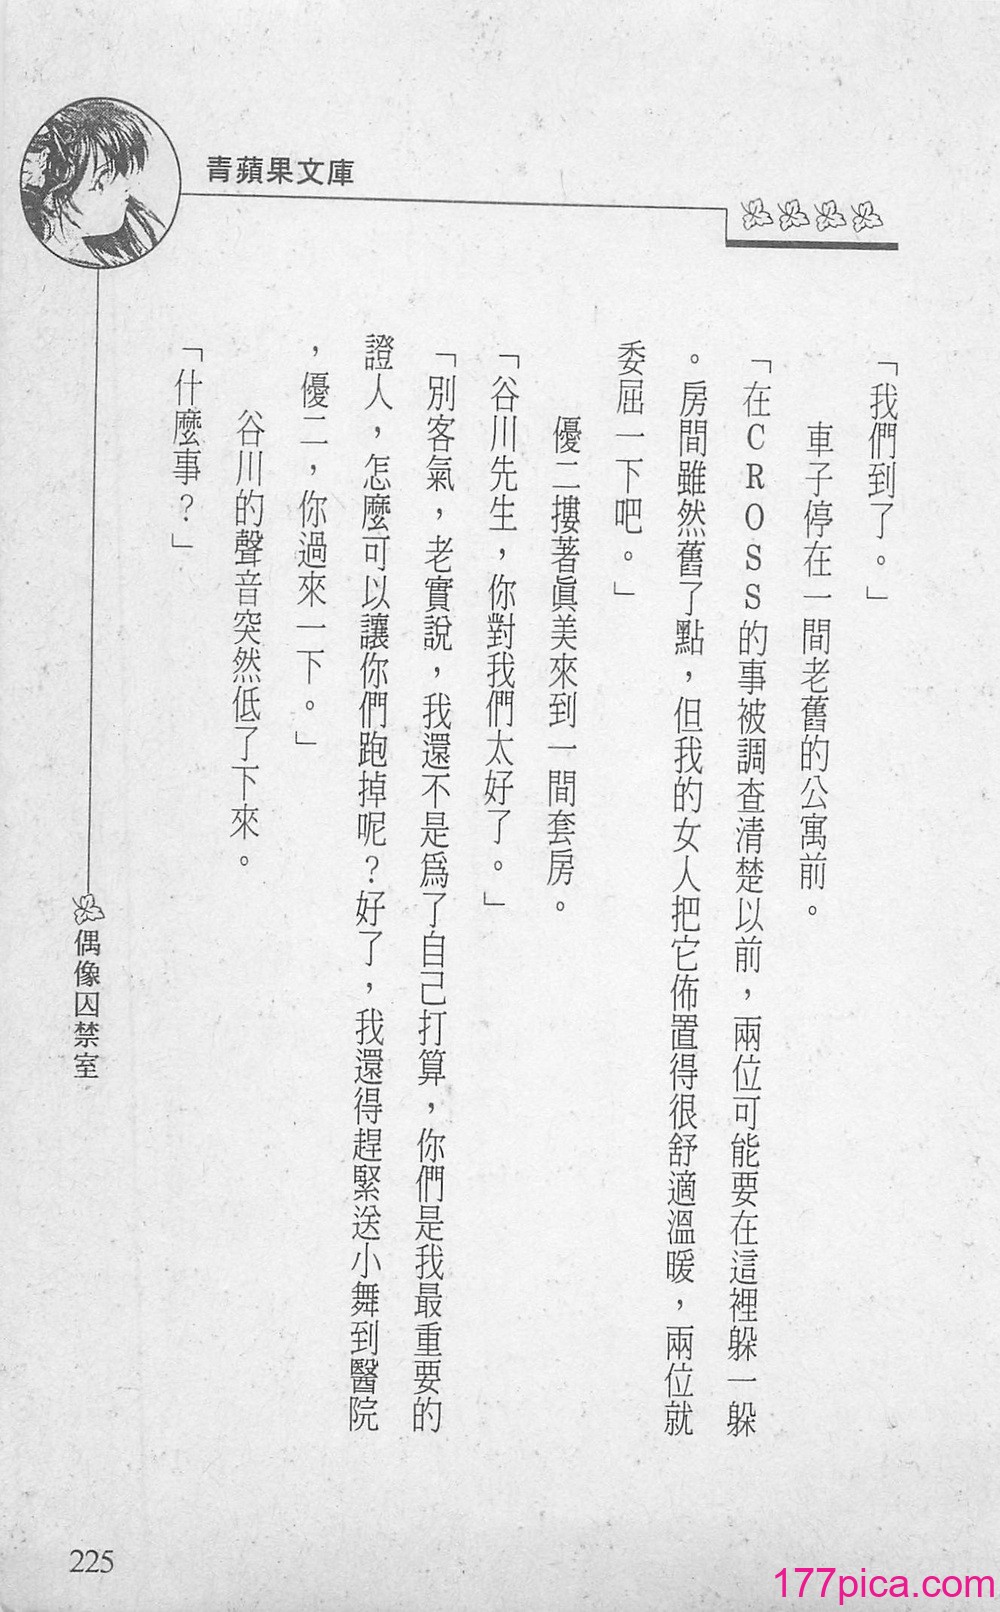 青蘋果文庫
「我們到了。」
車子停在一間老舊的公寓前。
「在CROSS的事被調查清楚以前，兩位可能要在這裡躲一躲
。房間雖然舊了點，但我的女人把它佈置得很舒適溫暖，兩位就
委屈一下吧。」
優二摟著眞美來到一間套房。
「谷川先生，你對我們太好了。」
「別客氣，老實說，我還不是爲了自己打算，你們是我最重要的
證人，怎麼可以讓你們跑掉呢？好了，我還得趕緊送小舞到醫院
，優二，你過來一下。」
谷川的聲音突然低了下來。
「什麼事？」
偶像囚禁室
225
177pica.com